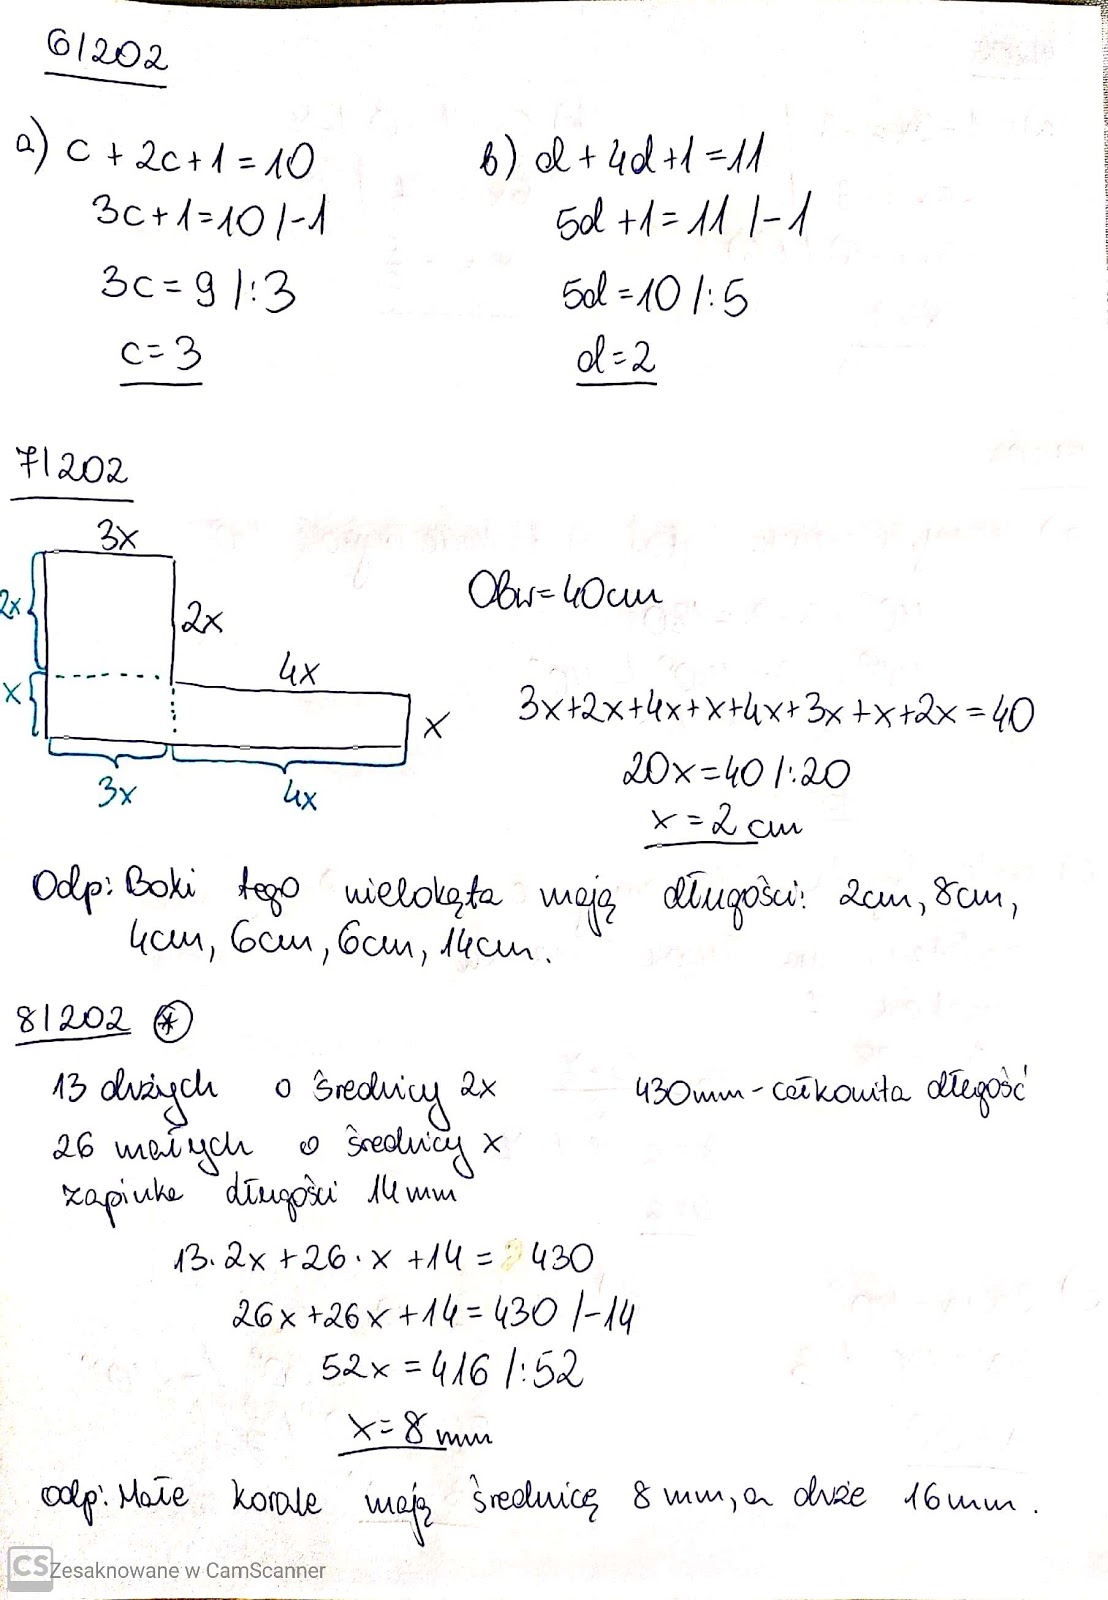 6/202
a) c + 2c + 1 = 10
3c + 1 = 10 /-1
3c = 9 /:3
c = 3
b) d + 4d + 1 = 11
5d + 1 = 11 /-1
5d = 10 /:5
d = 2
7/202
3x
2x
2x
4x
x
x
3x
4x
Obw = 40cm
3x+2x+4x+x+4x+3x+x+2x = 40
20x = 40 /:20
x = 2 cm
Odp: Boki tego wielokąta mają długości: 2cm, 8cm,
4cm, 6cm, 6cm, 14cm.
8/202 *
13 dużych o średnicy 2x
26 małych o średnicy x
zapinka długości 14mm
430mm - całkowita długość
13·2x + 26·x + 14 = 430
26x + 26x + 14 = 430 /-14
52x = 416 /:52
x = 8 mm
odp: Małe korale mają średnicę 8mm, a duże 16mm.
CS Zesaknowane w CamScanner